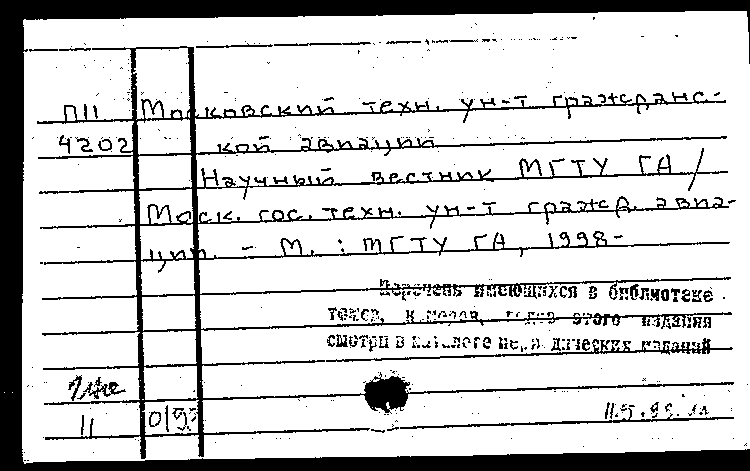 П11 Московский техн. ун-т гражданс-
4202 кой авиации
Научный вестник МГТУ ГА /
Моск. гос. техн. ун-т гражд. авиа-
ции. - М. : МГТУ ГА, 1998-
Перечень имеющихся в библиотеке
томов, номеров, годов этого издания
смотри в каталоге периодических изданий
11